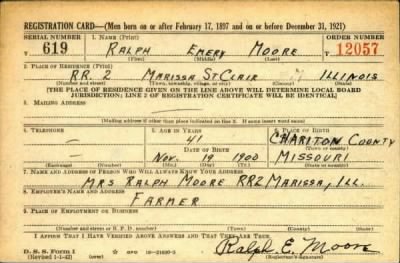 REGISTRATION CARD—(Men born on or after February 17, 1897 and on or before December 31, 1921)
SERIAL NUMBER 1. Name (Print) ORDER NUMBER
T 619 RALPH EMERY MOORE 12057
(First) (Middle) (Last)
2. Place of Residence (Print)
RR 2 MARISSA ST CLAIR ILLINOIS
(Number and street) (Town, township, village, or city) (County) (State)
[THE PLACE OF RESIDENCE GIVEN ON THE LINE ABOVE WILL DETERMINE LOCAL BOARD
JURISDICTION; LINE 2 OF REGISTRATION CERTIFICATE WILL BE IDENTICAL]
3. Mailing Address
[Mailing address if other than place indicated on line 2. If same insert word same]
4. Telephone 5. Age in Years Place of Birth
41 CHARITON COUNTY
Date of Birth
NOV. 19 1900 MISSOURI
(Exchange) (Number) (Mo.) (Day) (Yr.)
7. Name and Address of Person Who Will Always Know Your Address
MRS RALPH MOORE RR2 MARISSA, ILL.
8. Employer's Name and Address
FARMER
9. Place of Employment or Business
(Number and street or R. F. D. number) (Town) (County) (State)
I Affirm That I Have Verified Above Answers and That They Are True.
D. S. S. Form 1
(Revised 1-1-42) Ralph E. Moore
(Registrant's signature)